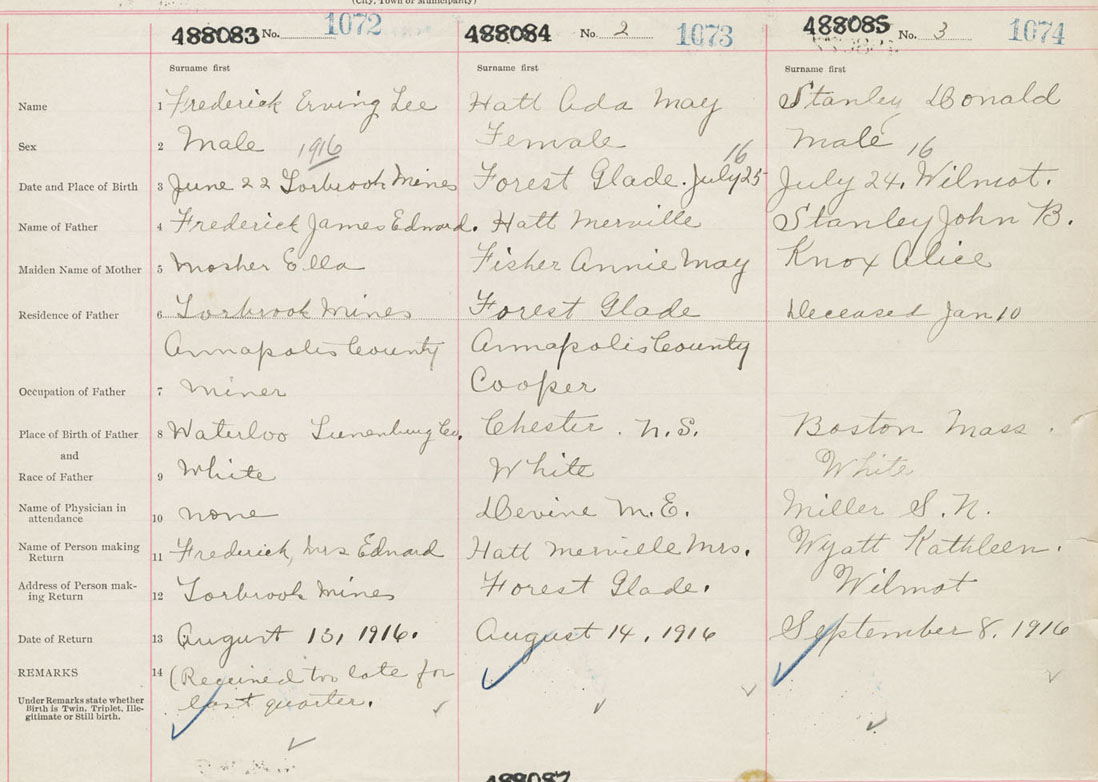 (City, Town or Municipality)
488083 No. 1072 488084 No. 2 1073 488085 No. 3 1074
Surname first Surname first Surname first
Name 1 Frederick Erving Lee Hatt Ada May Stanley Donald
Sex 2 Male 1916 Female Male
16 16
Date and Place of Birth 3 June 22 Torbrook Mines Forest Glade. July 25 July 24. Wilmot.
Name of Father 4 Frederick James Edward. Hatt Merville Stanley John B.
Maiden Name of Mother 5 Mosher Ella Fisher Annie May Knox Alice
Residence of Father 6 Torbrook Mines Forest Glade Deceased Jan 10
Annapolis County Annapolis County
Occupation of Father 7 Miner Cooper
Place of Birth of Father 8 Waterloo Lunenburg Co. Chester. N.S. Boston Mass.
and
Race of Father 9 White White White
Name of Physician in
attendance 10 none Devine M.E. Miller S. N.
Name of Person making
Return 11 Frederick, Mrs Edward Hatt Merville Mrs. Wyatt Kathleen.
Address of Person mak-
ing Return 12 Torbrook Mines Forest Glade. Wilmot
Date of Return 13 August 13, 1916. August 14, 1916 September 8. 1916
REMARKS 14 (Received too late for
last quarter.
Under Remarks state whether
Birth is Twin, Triplet, Ille-
gitimate or Still birth.
488087